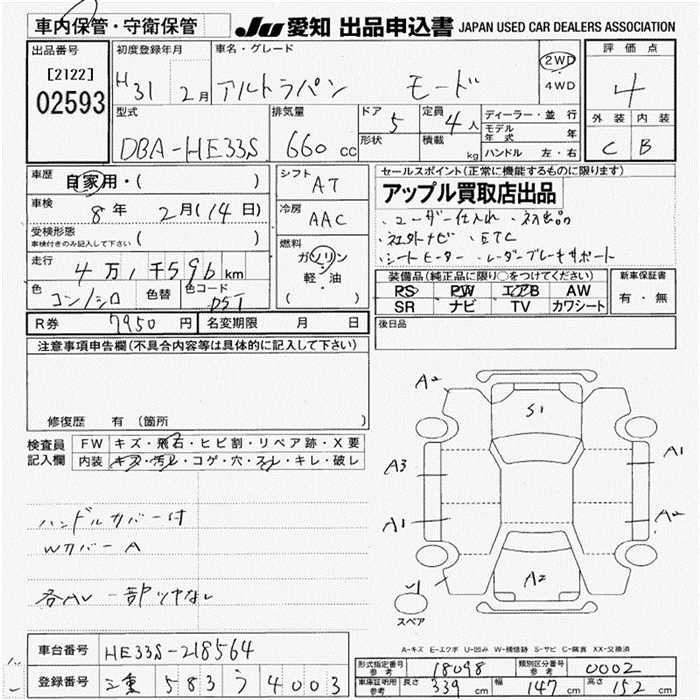 車内保管・守衛保管
JU 愛知 出品申込書 JAPAN USED CAR DEALERS ASSOCIATION
出品番号
[2122]
02593
初度登録年月
H31 2月
車名・グレード
アルトラパン モード
2WD
4WD
評価点
4
外装 内装
C B
型式
DBA-HE33S
排気量
660 cc
ドア 5
形状
定員 4人
積載 kg
ディーラー・並行
モデル年式 年
ハンドル 左・右
車歴
自家用・( )
車検
8年 2月(14日)
受検形態
車検付きのみ記入して下さい ( )
走行
4万1千596km
色
コン/シロ
色替
色コード
D5T
シフト
AT
冷房
AAC
燃料
ガソリン
軽・油
( )
セールスポイント(正常に機能するものに限ります)
アップル買取店出品
・ユーザー仕入れ ・初出品
・社外ナビ ・ETC
・シートヒーター ・レーダーブレーキサポート
装備品(純正品に限り○をつけてください)
PS PW エアB AW
SR ナビ TV カワシート
新車保証書
有・無
R券 7950円
名変期限 月 日
後日品
注意事項申告欄(不具合内容等は具体的に記入して下さい)
修復歴 有 (箇所 )
検査員記入欄
FW キズ・飛石・ヒビ割・リペア跡・X要
内装 キズ・汚レ・コゲ・穴・スレ・キレ・破レ
ハンドルカバー付
Wカバー A
各AU 一部ツヤなし
A2
S1
A3
A1
A1
A2
A2
スペア
A-キズ E-エクボ U-凹み W-補修跡 S-サビ C-腐食 XX-交換済
車台番号 HE33S-218564
登録番号 三重 583 う 4003
形式指定番号 参考 18098
類別区分番号 参考 0002
車庫証明用 参考 長さ 339 cm 幅 147 cm 高さ 152 cm